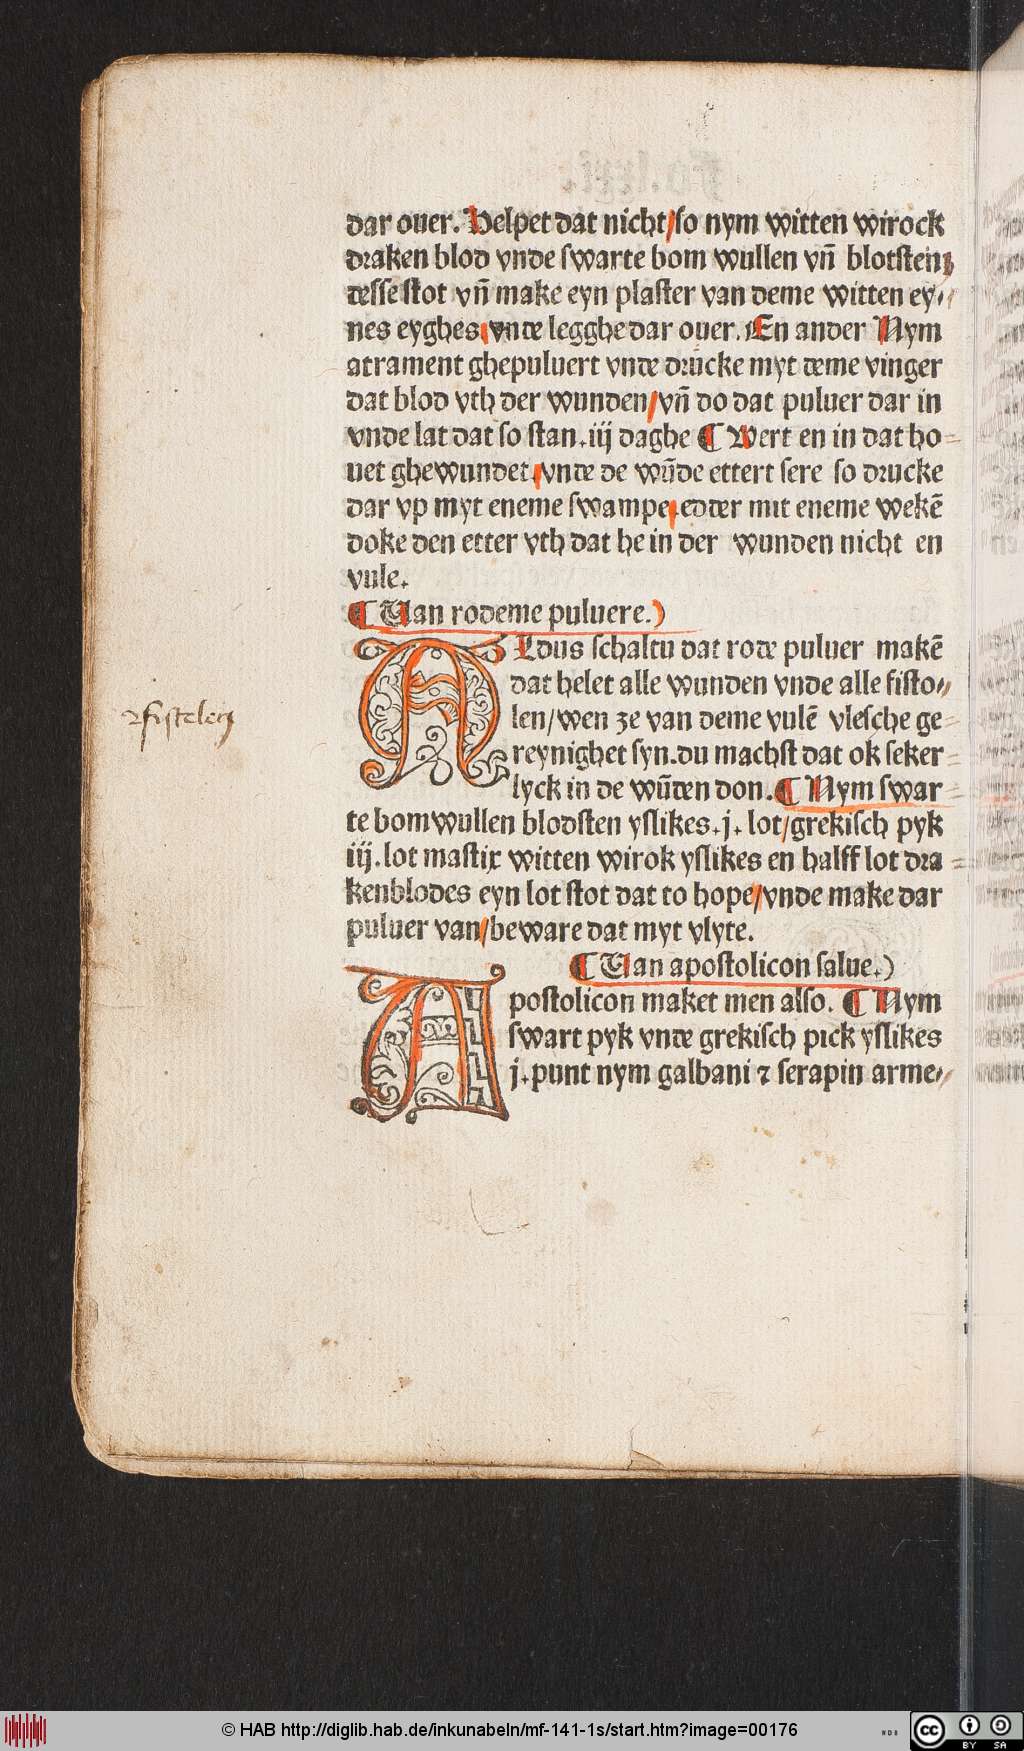 dar ouer. Helpet dat nicht/so nym witten wirock
draken blod vnde swarte bom wullen vn̄ blotsten
desse stot vn̄ make eyn plaster van deme witten ey⸗
nes eyghes/vnde legghe dar ouer. En ander Nym
atrament ghepuluert vnde drücke myt deme vinger
dat blod vth der wunden/vn̄ do dat puluer dar in
vnde lat dat so stan.iij daghe ¶ Wert en in dat ho⸗
uet ghewundet/vnde de wūde ettert sere so drucke
dar vp myt eneme swampe/edder mit eneme wekē
doke den etter vth dat he in der wunden nicht en
vule.
¶ Uan rodeme puluere.)
ALdus schaltu dat rode puluer makē
dat helet alle wunden vnde alle fisto⸗
len/wen ze van deme vulē vlesche ge⸗
reynighet syn.du machst dat ok seker⸗
lyck in de wūden don. ¶ Nym swar⸗
te bomwullen blodsten yslikes.j. lot/grekisch pyk
iij.lot mastix witten wirok yslikes en halff lot dra⸗
kenblodes eyn lot stot dat to hope/vnde make dar
puluer van/beware dat myt vlyte.
¶ Uan apostolicon salue.)
Apostolicon maket men also. ¶ Nym
swart pyk vnde grekisch pick yslikes
j.punt nym galbani ⁊ serapin arme⸗
© HAB http://diglib.hab.de/inkunabeln/mf-141-1s/start.htm?image=00176
WDB
cc BY SA